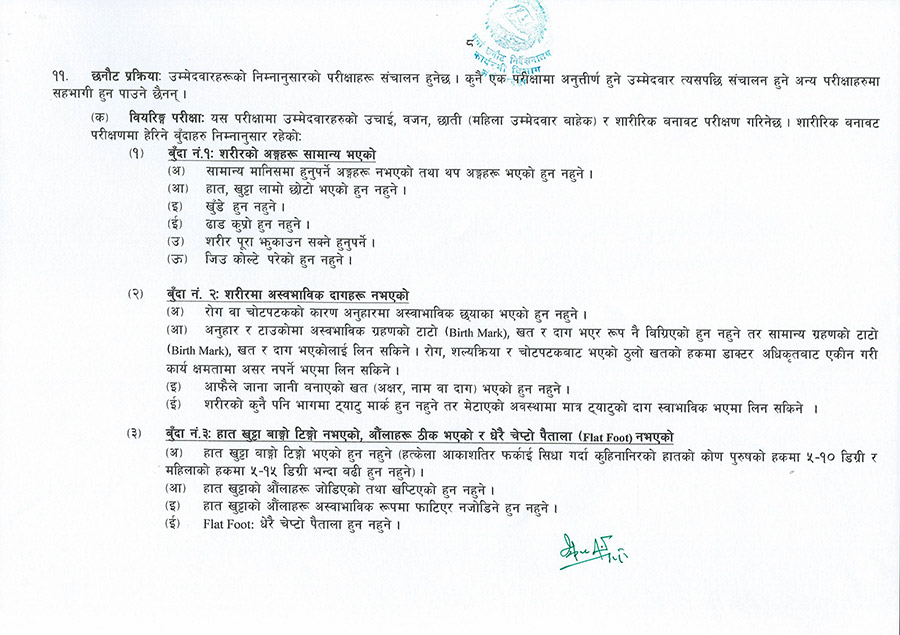 ८
११. छनौट प्रक्रिया: उम्मेदवारहरूको निम्नानुसारको परीक्षाहरू संचालन हुनेछ । कुनै एक परीक्षामा अनुत्तीर्ण हुने उम्मेदवार त्यसपछि संचालन हुने अन्य परीक्षाहरुमा
सहभागी हुन पाउने छैनन् ।
(क) वियरिङ्ग परीक्षा: यस परीक्षामा उम्मेदवारहरुको उचाई, वजन, छाती (महिला उम्मेदवार बाहेक) र शारीरिक बनावट परीक्षण गरिनेछ । शारीरिक बनावट
परीक्षणमा हेरिने बुँदाहरु निम्नानुसार रहेको:
(१) बुँदा नं.१: शरीरको अङ्गहरू सामान्य भएको
(अ) सामान्य मानिसमा हुनुपर्ने अङ्गहरू नभएको तथा थप अङ्गहरू भएको हुन नहुने ।
(आ) हात, खुट्टा लामो छोटो भएको हुन नहुने ।
(इ) खुँडे हुन नहुने ।
(ई) ढाड कुप्रो हुन नहुने ।
(उ) शरीर पूरा झुकाउन सक्ने हुनुपर्ने ।
(ऊ) जिउ कोल्टे परेको हुन नहुने ।
(२) बुँदा नं. २: शरीरमा अस्वभाविक दागहरू नभएको
(अ) रोग वा चोटपटकको कारण अनुहारमा अस्वाभाविक छायाका भएको हुन नहुने ।
(आ) अनुहार र टाउकोमा अस्वभाविक ग्रहणको टाटो (Birth Mark), खत र दाग भएर रूप नै विग्रिएको हुन नहुने तर सामान्य ग्रहणको टाटो
(Birth Mark), खत र दाग भएकोलाई लिन सकिने । रोग, शल्यक्रिया र चोटपटकबाट भएको ठुलो खतको हकमा डाक्टर अधिकृतबाट एकीन गरी
कार्य क्षमतामा असर नपर्ने भएमा लिन सकिने ।
(इ) आफैले जाना जानी वनाएको खत (अक्षर, नाम वा दाग) भएको हुन नहुने ।
(ई) शरीरको कुनै पनि भागमा ट्याटु मार्क हुन नहुने तर मेटाएको अवस्थामा मात्र ट्याटुको दाग स्वाभाविक भएमा लिन सकिने ।
(३) बुँदा नं.३: हात खुट्टा बाङ्गो टिङ्गो नभएको, औंलाहरू ठीक भएको र धेरै चेप्टो पैताला (Flat Foot) नभएको
(अ) हात खुट्टा बाङ्गो टिङ्गो भएको हुन नहुने (हत्केला आकाशतिर फर्काई सिधा गर्दा कुहिनानिरको हातको कोण पुरुषको हकमा ५-१० डिग्री र
महिलाको हकमा ५-१५ डिग्री भन्दा वढी हुन नहुने) ।
(आ) हात खुट्टाको औंलाहरू जोडिएको तथा खप्टिएको हुन नहुने ।
(इ) हात खुट्टाको औंलाहरू अस्वाभाविक रूपमा फाटिएर नजोडिने हुन नहुने ।
(ई) Flat Foot: धेरै चेप्टो पैताला हुन नहुने ।